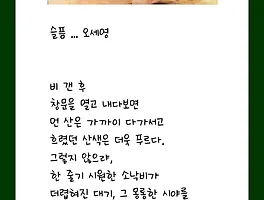 슬픔 ... 오세영
비 갠 후
창문을 열고 내다보면
먼 산은 가까이 다가서고
흐렸던 산색은 더욱 푸르다.
그렇지 않으랴,
한 줄기 시원한 소낙비가
더럽혀진 대기, 그 몽롱한 시야를